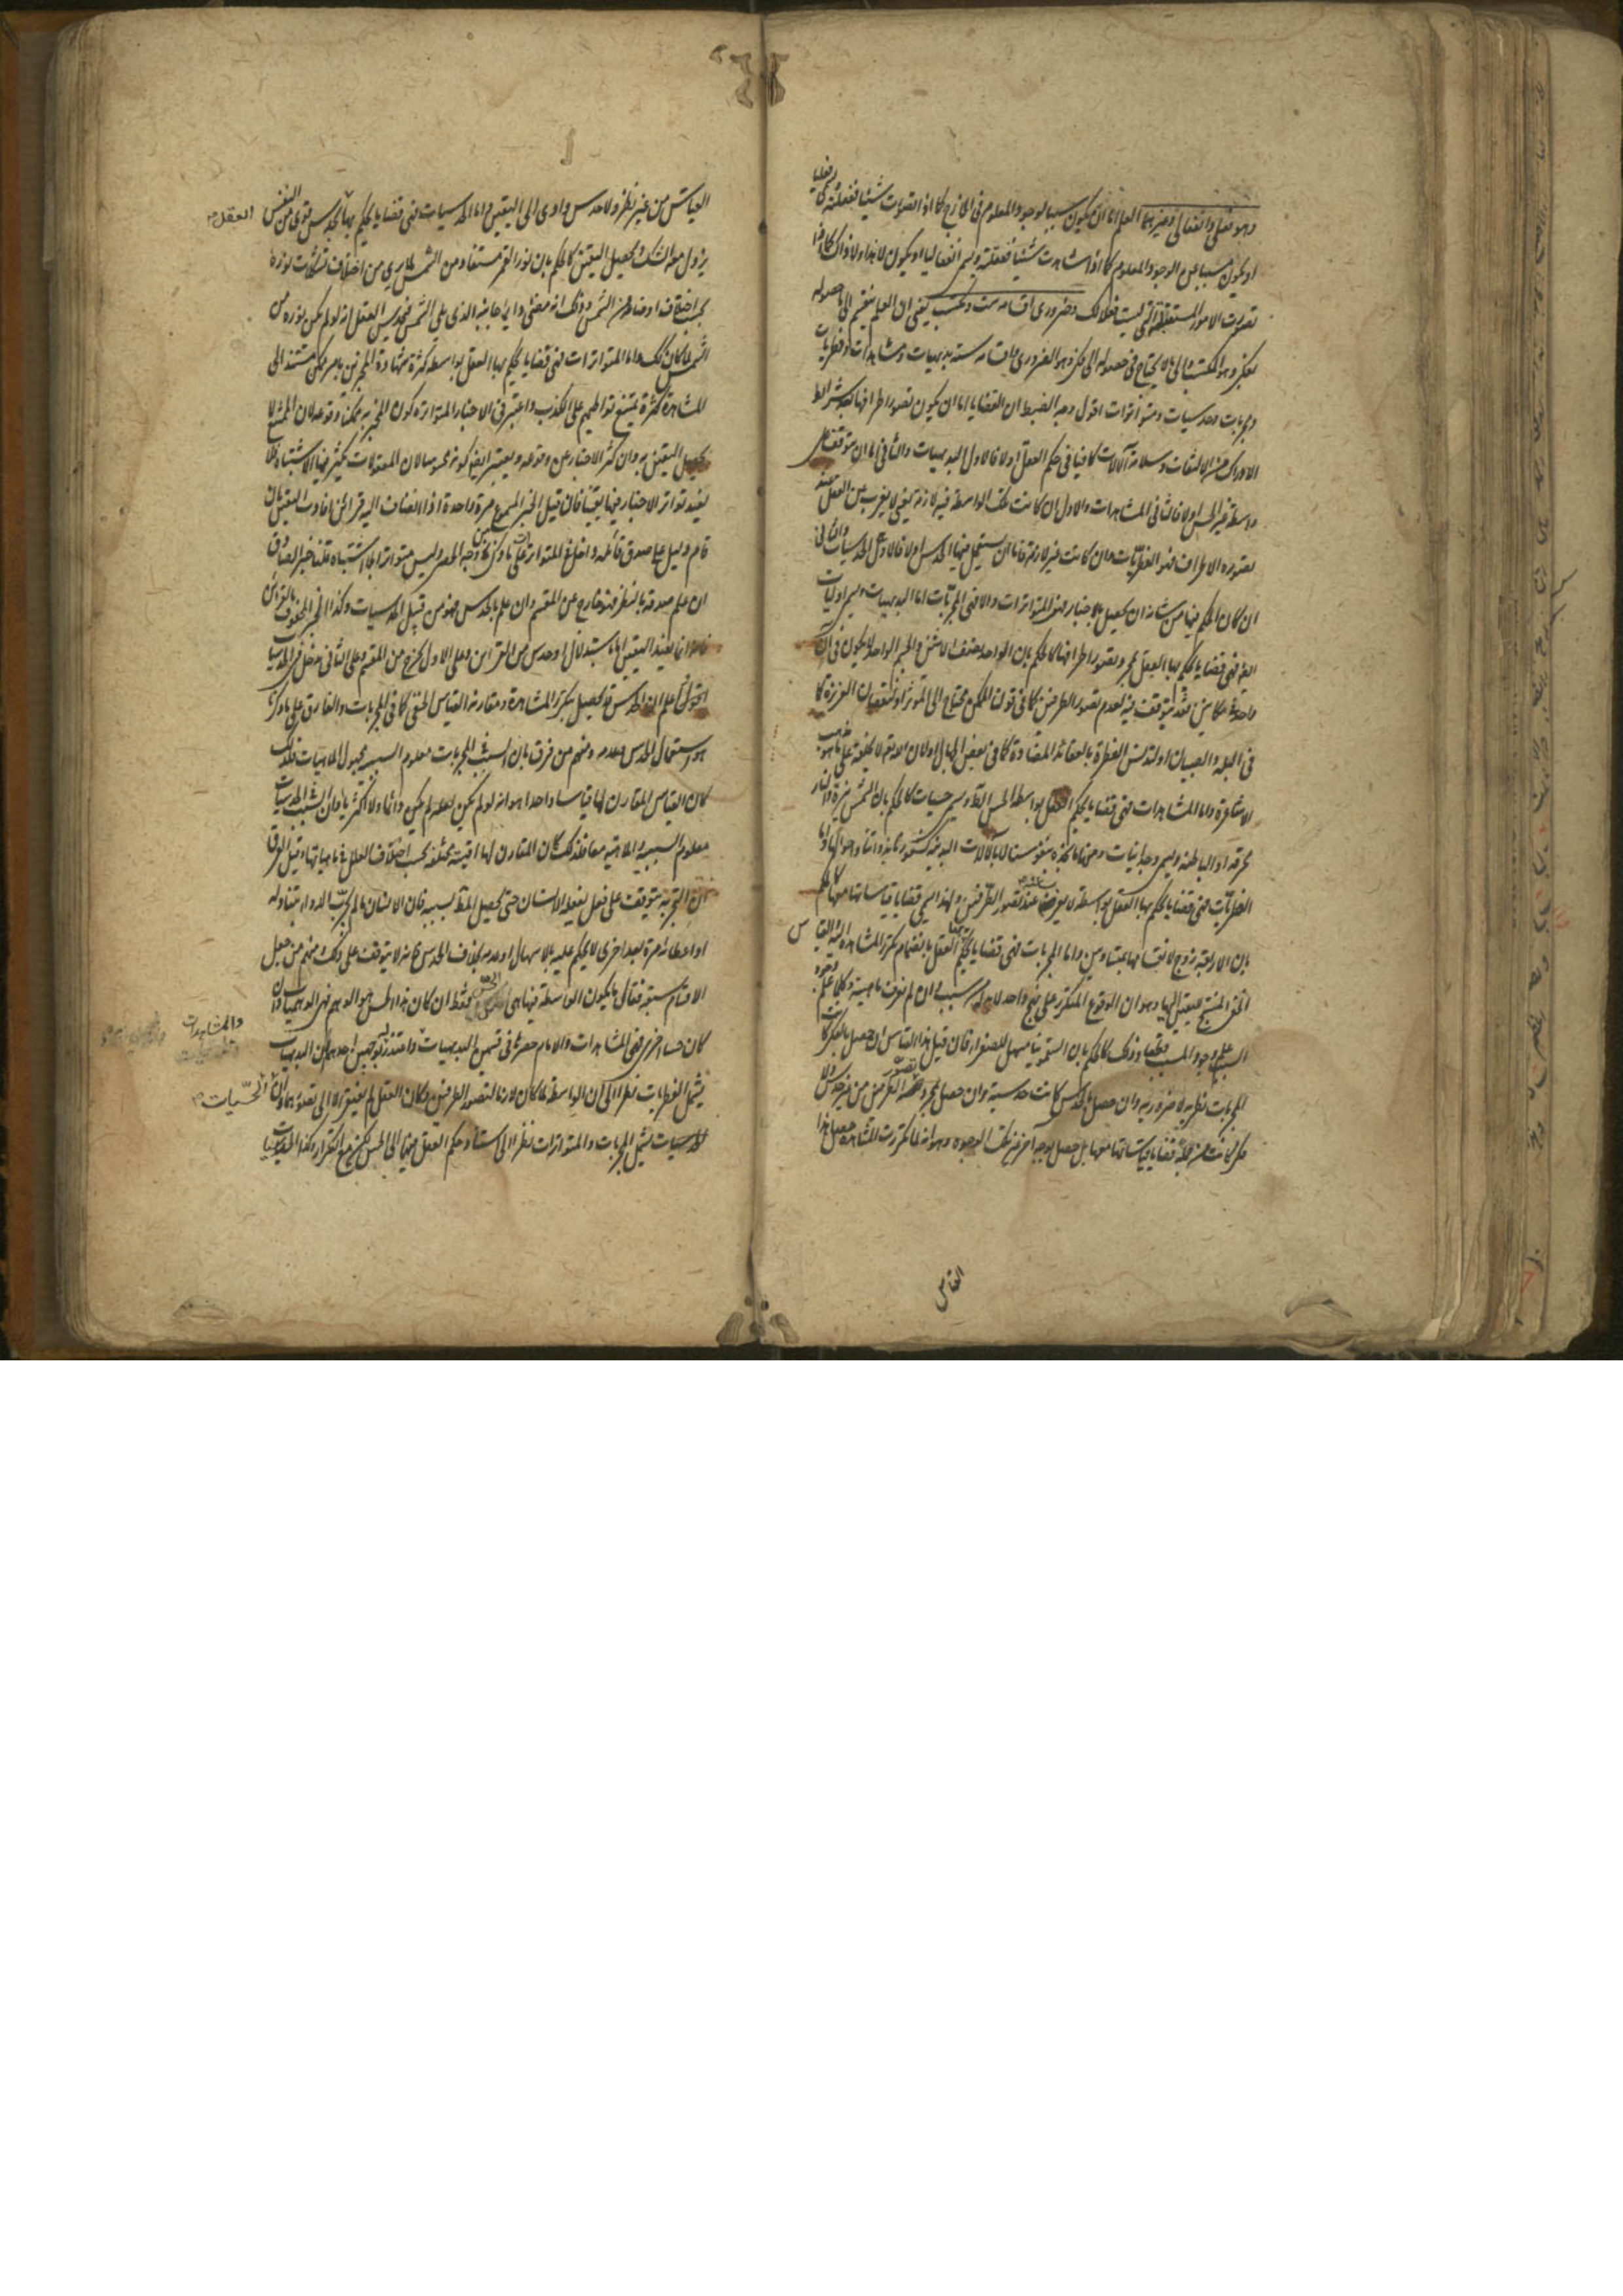 وهو فعلي وانفعالي وغيرهما العلم اما ان يكون سببا لوجود المعلوم في الخارج كما اذا تصورت شيئا ففعلته ويسمى فعليا
او يكون مسببا عن الوجود المعلوم كما اذا شاهدت شيئا فتعقلته ويسمى انفعاليا او يكون لا هذا ولا ذاك كما اذا
تصورت الامور المستقبلة التي ليست فعلا لك وضروري اقسامه ست ومكتسب يعني ان العلم ينقسم الى ما حصوله
بفكر وهو المكتسب والى ما لا يحتاج في حصوله الى فكر وهو الضروري واقسامه ستة بديهيات ومشاهدات وفطريات
ومجربات وحدسيات ومتواترات اقول وجه الضبط ان القضايا اما ان يكون تصور اطرافها بعد شرائط
الادراك من الالتفات وسلامة الآلات كافيا في حكم العقل او لا فالاول البديهيات والثاني اما ان يتوقف على
واسطة غير الحس او لا فالثاني المشاهدات والاول ان كانت تلك الواسطة فيه لازمة يعني لا يغرب عن العقل عند
تصور الاطراف فهو الفطريات وان كانت غير لازمة فاما ان يستعمل فيها الحدس او لا فالاول الحدسيات والثاني
ان كان الحكم فيها من شانه ان يحصل بالاخبار فهو المتواترات والا فهي المجربات اما البديهيات ويسمى اوليات
ايضا فهي قضايا يحكم بها العقل بمجرد تصور اطرافها كالحكم بان الواحد نصف الاثنين والجسم الواحد لا يكون في آن
واحد في مكانين وقد يتوقف فيه لعدم تصور الطرفين كما في قولنا الممكن محتاج الى المؤثر او لنقصان الغريزة كما
في البله والصبيان او لتدنس الفطرة بالعقائد المضادة كما في بعض الجهال او لان الله تعالى لا يخلقه على ما هو مذهب
الاشاعرة واما المشاهدات فهي قضايا يحكم العقل بواسطة الحس الظاهر وتسمى حسيات كالحكم بان الشمس نيرة والنار
محرقة او الباطنة ويسمى وجدانيات ومنها ما نجده بنفوسنا لا بالآلات البدنية كشعورنا بذواتنا واحوالها واما
الفطريات فهي قضايا يحكم بها العقل بواسطة لا يعزب عنه عند تصور الطرفين ولهذا يسمى قضايا قياساتها معها كالحكم
بان الاربعة زوج لانقسامها بمتساويين واما المجربات فهي قضايا يحكم بها العقل بانضمام تكرر المشاهدة اليه القياس
الخفي المنتج لليقين اليها وهو ان الوقوع المتكرر على نهج واحد لا بد له من سبب وان لم نعرف ماهيته وكلما علم وجود
السبب علم وجود المسبب قطعا وذلك كالحكم بان السقمونيا مسهل للصفراء فان قيل هذا القياس ان حصل بالفكر كانت
المجربات نظرية لا ضرورية وان حصل بالحدس كانت حدسية وان حصل بمجرد تصور الطرفين من غير حدس ولا
فكر كانت من جملة قضايا قياساتها معها بل حصل بوجه آخر غير تلك الوجوه وهو انه لما تكررت المشاهدة حصل هذا
القياس
القياس من غير نظر ولا حدس وادى الى اليقين واما الحدسيات فهي قضايا يحكم بها بحدس قوي من النفس
العقل
يزول معه الشك ويحصل اليقين كالحكم بان نور القمر مستفاد من الشمس لما يرى من اختلاف تشكلات نوره
بحسب اختلاف اوضاعه من الشمس وذلك انه مضيء دايما جانبه الذي يلي الشمس فيحدس العقل انه لو لم يكن نوره من
الشمس لما كان كذلك واما المتواترات فهي قضايا يحكم بها العقل بواسطة كثرة شهادة المخبرين بامر ممكن مستند الى
المشاهدة كثرة يمتنع تواطئهم على الكذب واعتبر في الاخبار المتواترة كون المخبر به ممكنا وقوعه لان الممتنع لا
يحصل اليقين به وان كثر الاخبار عن وقوعه ويعتبر ايضا كونه محسوسا لان المعقولات يكثر فيها الاشتباه فلا
يفيد تواتر الاخبار فيها يقينا فان قيل الخبر المسموع مرة واحدة اذا انضاف اليه قرائن افادت اليقين بان
قام دليل على صدق قائله داخل في المتواتر على ما ذكرنا في وجه الحصر وليس متواترا بلا اشتباه قلنا خبر الصادق
ان علم صدقه بالنظر فهو خارج عن المقسم وان علم بالحدس فهو من قبيل الحدسيات وكذا الخبر المحفوف بالقرائن
فانه انما يفيد اليقين اما باستدلال او حدس من القرائن وعلى الاول يخرج من المقسم وعلى الثاني يدخل في الحدسيات
اقول اعلم ان الحدس قد يحصل بتكرر المشاهدة ومقارنة القياس الخفي كما في المجربات والفارق على ما ذكرنا
هو استعمال الحدس وعدمه ومنهم من فرق بان السبب في المجربات معلوم السببية مجهول الماهية فلذلك
كان القياس المقارن لها قياسا واحدا هو انه لو لم يكن لعلة لم يكن دائما ولا اكثريا وان السبب في الحدسيات
معلوم السببية والماهية معا فلذلك كان المقارن لها اقيسة مختلفة بحسب اختلاف العلل في ماهياتها وقيل الفرق
ان التجربة تتوقف على فعل يفعله الانسان حتى يحصل المطلوب بسببه فان الانسان ما لم يجرب الدواء بتناوله
او اعطائه مرة بعد اخرى لا يحكم عليه بالاسهال او عدمه بخلاف الحدس فانه لا يتوقف على ذلك ومنهم من جعل
الاقسام سبعة فقال ما يكون الواسطة فيها هي الحس فقط ان كان هذا الحس هو الوهم فهي الوهميات وان
والمشاهدات
كان حسا آخر فهي المشاهدات والامام حصرها في قسمين البديهيات
يشمل الفطريات نظرا الى ان الواسطة لما كان لازما لتصور الطرفين فكان العقل لم يفتقر الا الى تصورهما وان الحسيات
الحسيات
يشمل المجربات والمتواترات نظرا الى استناد حكم العقل فيها الى الحس لكن مع التكرار وكذا الحدسيات